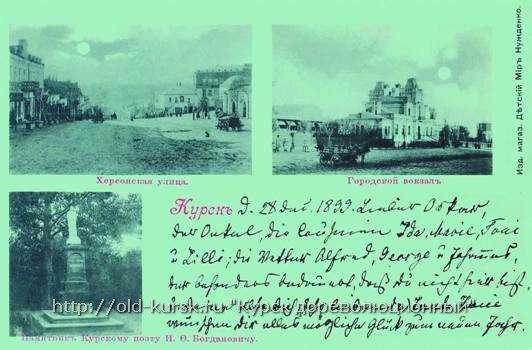 Изд. магаз. Дѣтскій Міръ Нужденко.
Херсонская улица.
Городской вокзалъ
Курскъ D. 28 Dec. 1899. Lieber Oskar,
der Onkel, die Cousinen Ida, Marie, Toni
u Lilli; die Vettern Alfred, George u Johannes,
daß du nicht hier bist.
http://old-kursk.ru "Курск дореволюционный"
wünschen dir alles mögliche Glück zum neuen Jahr.
Памятникъ Курскому поэту И. Ѳ. Богдановичу.